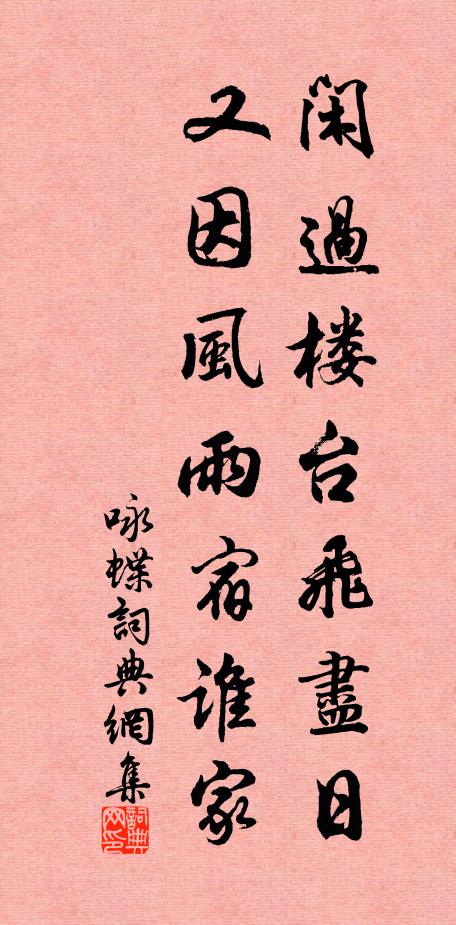 闲過楼台飛盡日
又因風雨宿誰家
咏蝶詞典網集
詞典网印